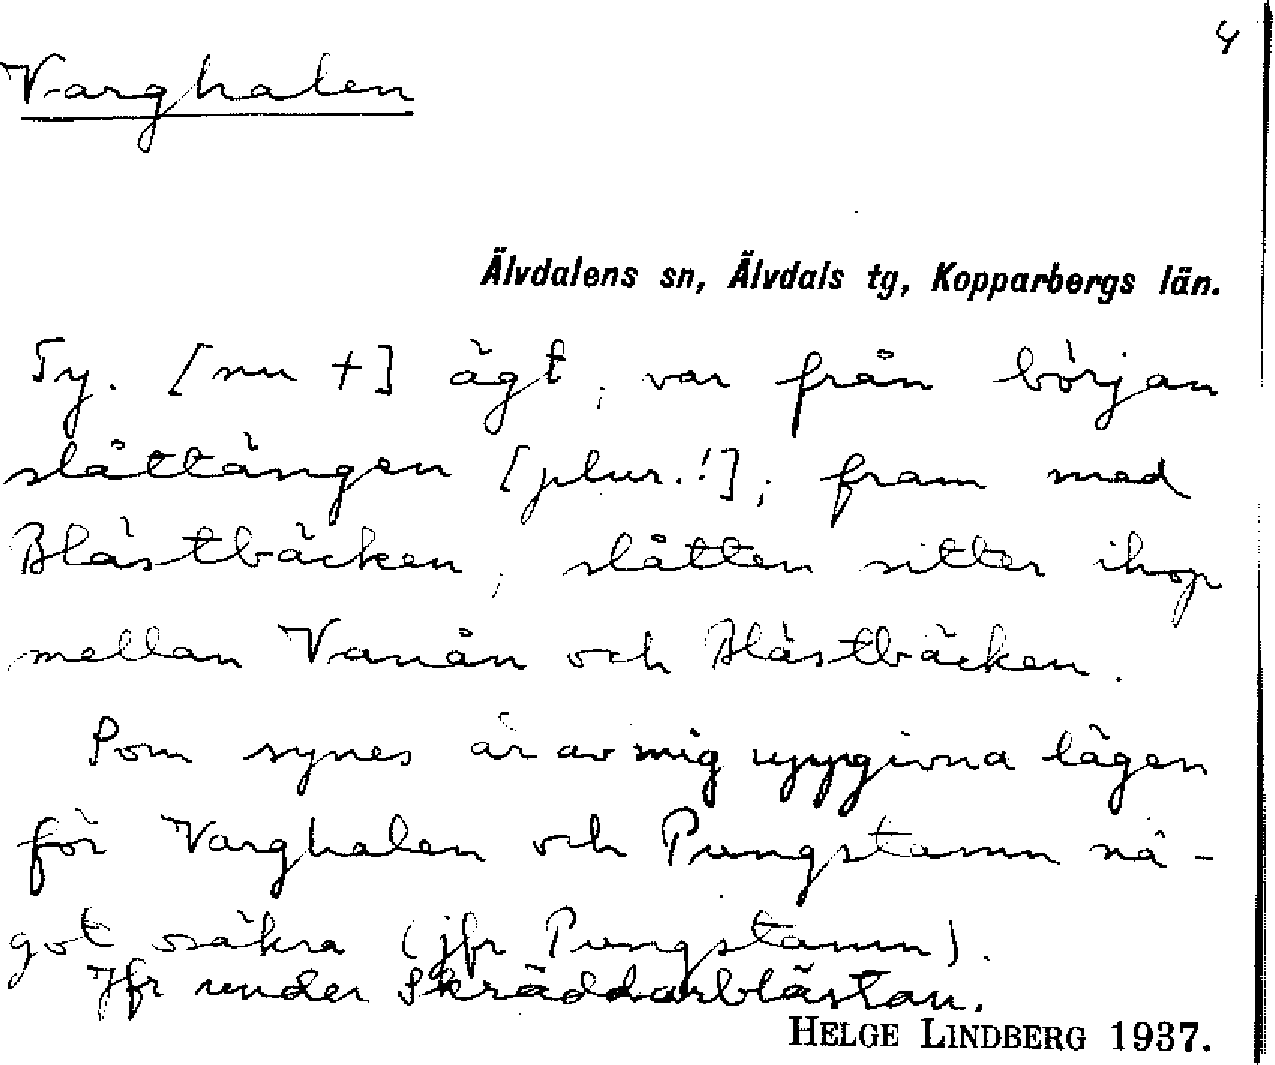 4
Varghalen
Älvdalens sn, Älvdals tg, Kopparbergs län.
Ty. [nu +] ägt, var från början
slåttängen [plur.!], fram med
Blästbäcken, slåtten sitter ihop
mellan Vanån och Blästbäcken.
Som synes är av mig uppgivna lägen
för Varghalen och Pungstamm nå-
got osäkra (jfr Pungstamm).
Jfr under Skräddarblästan.
HELGE LINDBERG 1937.